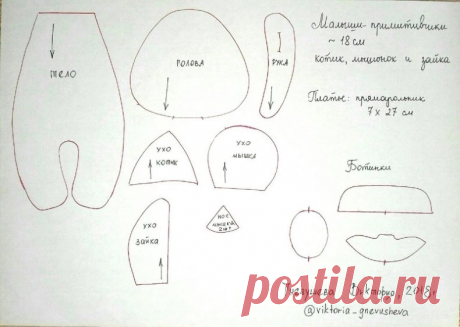 Малыши-примитивчики
~ 18 см
котик, мышонок и зайка
Платье: прямоугольник
7 х 27 см
тело
голова
рука
ухо
котик
ухо
мышка
Ботинки
ухо
зайка
нос
мышка
2 шт
Виктория, 2018г.
@viktoria_gnevusheva
postila.ru